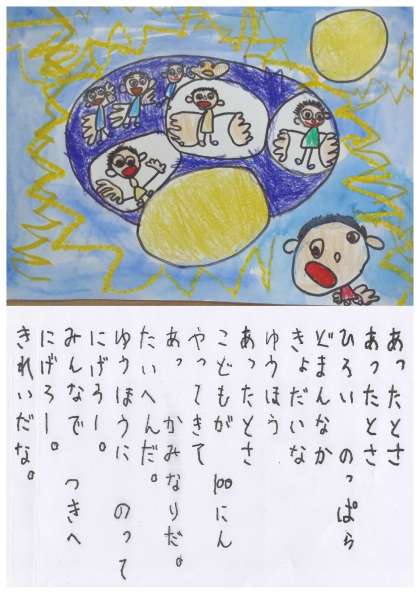 あったとさ
あったとさ
ひろい のっぱら
どまんなか
きょだいな
ゆうほう
あったとさ
こどもが 100にん
やってきて
あっ かみなりだ。
たいへんだ。
ゆうほうに のって
にげろー。
みんなで つきへ
にげろー。
きれいだな。